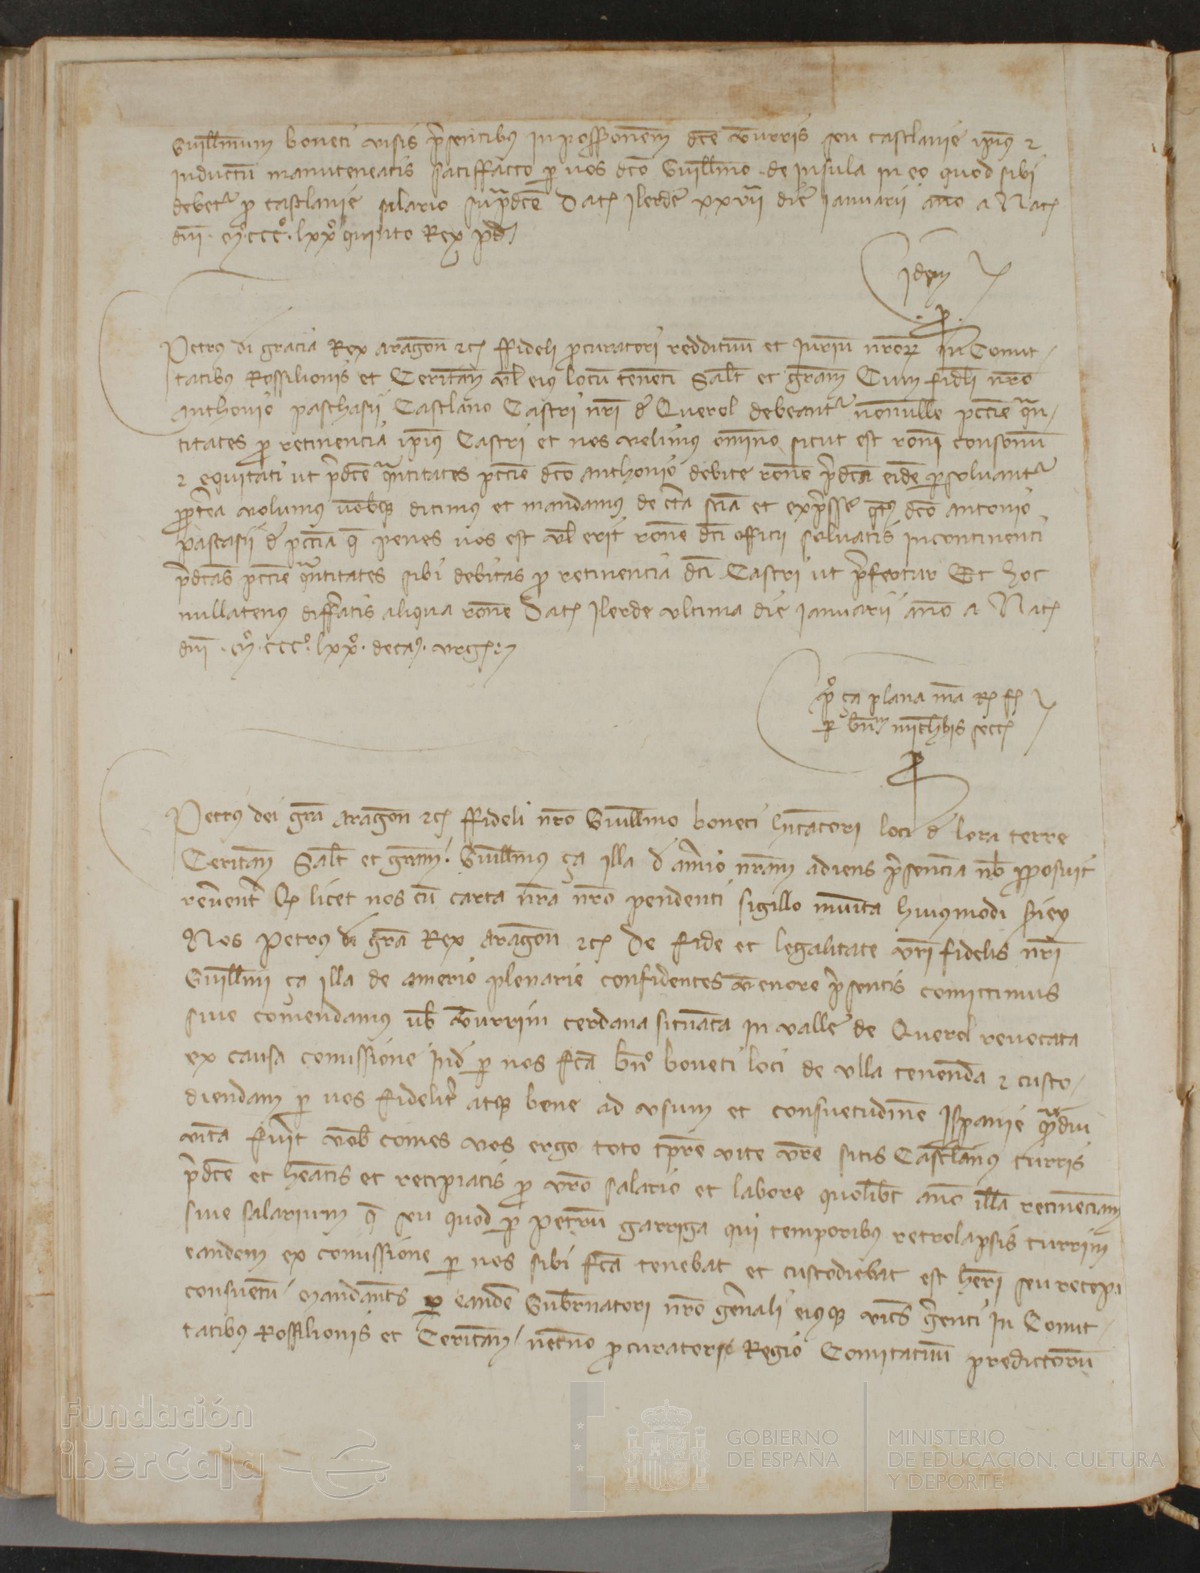 Guillmum boneti visis presentibus in possessionem dce turris seu castlanie ipius et
inductum manuteneatis satisffacto per vos dco Guillmo de Insula in eo quod sibi
debetur pro castlanie salario supradce Dat Ilerde xxvii die Ianuarii anno a Nat
dni Mº CCCº lxxº quinto Rex P
Idem
Petrus di gracia Rex Aragon etc ffideli procuratori reddituum et Iurium nrorum in Comit-
tatibus Rossilionis et Ceritan vel eius locum tenenti Salt et gram Cum fideli nro
Anthonio paschasii Castlano Castri nri de Querol debeantur nonnulle peccunie quan-
titates pro retinencia ipius Castri et nos velimus omnino sicut est roni consonum
et equitati ut predce quantitates peccunie dco anthonio debite rone predca eidem persolvantur
propterea volumus vobisque dicimus et mandamus de certa scia et expresse quatenus dco antonio
pascasii de peccunia que penes vos est vel erit rone dci officii solvatis incontinenti
predcas peccunie quantitates sibi debitas pro retinencia dci Castri ut prefertur Et hoc
nullatenus differatis aliqua rone Dat Ilerde ultima die Ianuarii anno a Nat
dni Mº CCCº lxxº
P ça plana
per
Petrus dei gra Aragon etc ffideli nro Guillmo boneti loci de lora terre
Ceritan Salt et gram Guillmus ça illa d amerio nram adiens presencia nob proposuit
reverenter Qd licet nos cum carta nra nro pendenti sigillo munita huiusmodi seriey
Nos Petrus di gra Rex Aragon etc De fide et legalitate vri fidelis nri
Guillmi ça illa de amerio plenarie confidentes tenore presentis comittimus
sive comendamus vob turrim cerdana situata in valle de Querol revocata
ex causa comissione Inde per nos fca Bno boneti loci de ulla tenenda et custo-
diendam per vos fideliter atque bene ad usum et consuetudine Ispanie quamdiu
vita fuerit vob comes vos ergo toto tpre vite vre sitis Castlanus turris
predce et heatis et recipiatis pro vro salario et labore quolibet anno illa retinenciam
sive salarium que seu quod per Petrum garriga qui temporibus retrolapsis turrim
eandem ex comissione per nos sibi fca tenebat et custodiebat est heri seu recepi
consuetu Mandantes per eande Gubernatori nro generali eiusque vices gerenti In Comit-
tatibus Rossilionis et Ceritan necno procuratore Regio Comitatuum predictorum
Fundación
iberCaja
GOBIERNO
DE ESPAÑA
MINISTERIO
DE EDUCACIÓN, CULTURA
Y DEPORTE